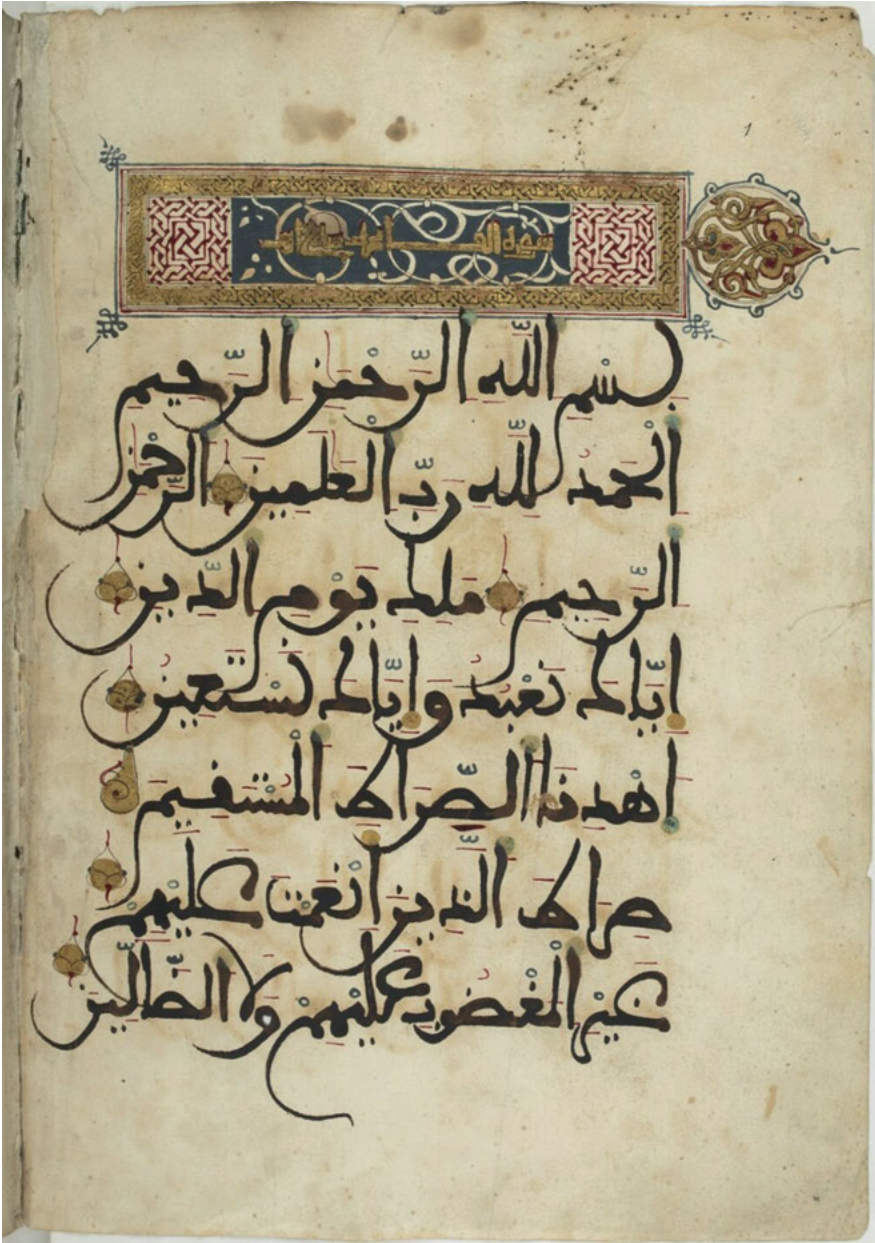 1
سورة الفاتحة
بِسْمِ اللَّهِ الرَّحْمَنِ الرَّحِيمِ
الْحَمْدُ لِلَّهِ رَبِّ الْعَلَمِينَ الرَّحْمَنِ
الرَّحِيمِ مَلِكِ يَوْمِ الدِّينِ
إِيَّاكَ نَعْبُدُ وَإِيَّاكَ نَسْتَعِينُ
اهْدِنَا الصِّرَاطَ الْمُسْتَقِيمَ
صِرَاطَ الَّذِينَ أَنْعَمْتَ عَلَيْهِمْ
غَيْرِ الْمَغْضُوبِ عَلَيْهِمْ وَلَا الضَّالِّينَ